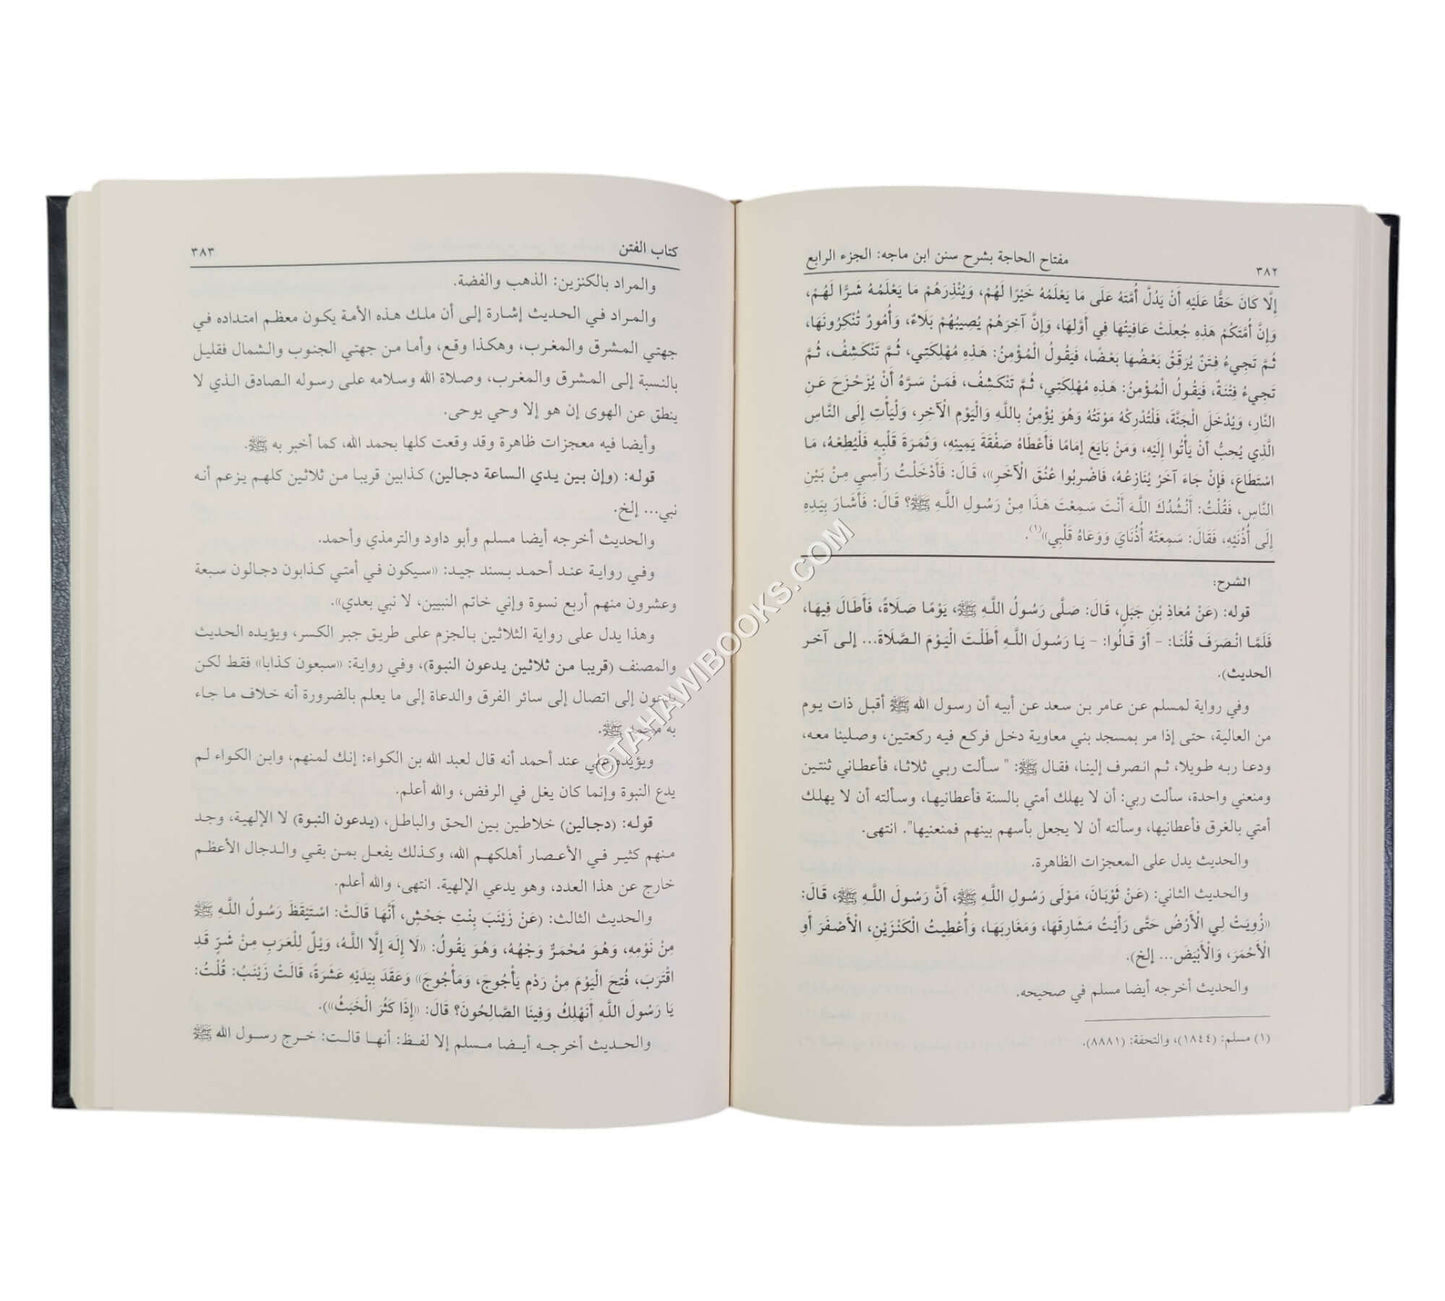 مفتاح الحاجة بشرح سنن ابن ماجه: الجزء الرابع
٣٨٢
إِلَّا كَانَ حَقًّا عَلَيْهِ أَنْ يَدُلَّ أُمَّتَهُ عَلَى مَا يَعْلَمُهُ خَيْرًا لَهُمْ، وَيُنْذِرَهُمْ مَا يَعْلَمُهُ شَرًّا لَهُمْ،
وَإِنَّ أُمَّتَكُمْ هَذِهِ جُعِلَتْ عَافِيَتُهَا فِي أَوَّلِهَا، وَإِنَّ آخِرَهُمْ يُصِيبُهُمْ بَلَاءٌ، وَأُمُورٌ تُنْكِرُونَهَا،
ثُمَّ تَجِيءُ فِتَنٌ يُرَقِّقُ بَعْضُهَا بَعْضًا، فَيَقُولُ الْمُؤْمِنُ: هَذِهِ مُهْلِكَتِي، ثُمَّ تَنْكَشِفُ، ثُمَّ
تَجِيءُ فِتْنَةٌ، فَيَقُولُ الْمُؤْمِنُ: هَذِهِ مُهْلِكَتِي، ثُمَّ تَنْكَشِفُ، فَمَنْ سَرَّهُ أَنْ يُزَحْزَحَ عَنِ
النَّارِ، وَيُدْخَلَ الْجَنَّةَ، فَلْتُدْرِكْهُ مَوْتَتُهُ وَهُوَ يُؤْمِنُ بِاللَّهِ وَالْيَوْمِ الْآخِرِ، وَلْيَأْتِ إِلَى النَّاسِ
الَّذِي يُحِبُّ أَنْ يَأْتُوا إِلَيْهِ، وَمَنْ بَايَعَ إِمَامًا فَأَعْطَاهُ صَفْقَةَ يَمِينِهِ، وَثَمَرَةَ قَلْبِهِ فَلْيُطِعْهُ، مَا
اسْتَطَاعَ، فَإِنْ جَاءَ آخَرُ يُنَازِعُهُ، فَاضْرِبُوا عُنُقَ الْآخَرِ»، قَالَ: فَأَدْخَلْتُ رَأْسِي مِنْ بَيْنِ
النَّاسِ، فَقُلْتُ: أَنْشُدُكَ اللَّهَ أَنْتَ سَمِعْتَ هَذَا مِنْ رَسُولِ اللَّهِ ﷺ؟ قَالَ: فَأَشَارَ بِيَدِهِ
إِلَى أُذُنَيْهِ، فَقَالَ: سَمِعَتْهُ أُذُنَايَ وَوَعَاهُ قَلْبِي»(١).
الشرح:
قوله: (عَنْ مُعَاذِ بْنِ جَبَلٍ، قَالَ: صَلَّى رَسُولُ اللَّهِ ﷺ، يَوْمًا صَلَاةً، فَأَطَالَ فِيهَا،
فَلَمَّا انْصَرَفَ قُلْنَا: - أَوْ قَالُوا: - يَا رَسُولَ اللَّهِ أَطَلْتَ الْيَوْمَ الصَّلَاةَ... إلى آخر
الحديث).
وفي رواية لمسلم عن عامر بن سعد عن أبيه أن رسول الله ﷺ أقبل ذات يوم
من العالية، حتى إذا مر بمسجد بني معاوية دخل فركع فيه ركعتين، وصلينا معه،
ودعا ربه طويلا، ثم انصرف إلينا، فقال ﷺ: " سألت ربي ثلاثا، فأعطاني ثنتين
ومنعني واحدة، سألت ربي: أن لا يهلك أمتي بالسنة فأعطانيها، وسألته أن لا يهلك
أمتي بالغرق فأعطانيها، وسألته أن لا يجعل بأسهم بينهم فمنعنيها". انتهى.
والحديث يدل على المعجزات الظاهرة.
والحديث الثاني: (عَنْ ثَوْبَانَ، مَوْلَى رَسُولِ اللَّهِ ﷺ، أَنَّ رَسُولَ اللَّهِ ﷺ، قَالَ:
«زُوِيَتْ لِي الْأَرْضُ حَتَّى رَأَيْتُ مَشَارِقَهَا، وَمَغَارِبَهَا، وَأُعْطِيتُ الْكَنْزَيْنِ، الْأَصْفَرَ أَوِ
الْأَحْمَرَ، وَالْأَبْيَضَ... إلخ).
والحديث أخرجه أيضا مسلم في صحيحه.
(١) مسلم: (١٨٤٤)، والتحفة: (٨٨٨١).
كتاب الفتن
٣٨٣
والمراد بالكنزين: الذهب والفضة.
والمراد في الحديث إشارة إلى أن ملك هذه الأمة يكون معظم امتداده في
جهتي المشرق والمغرب، وهكذا وقع، وأما من جهتي الجنوب والشمال فقليل
بالنسبة إلى المشرق والمغرب، وصلاة الله وسلامه على رسوله الصادق الذي لا
ينطق عن الهوى إن هو إلا وحي يوحى.
وأيضا فيه معجزات ظاهرة وقد وقعت كلها بحمد الله، كما أخبر به ﷺ.
قوله: (وإن بين يدي الساعة دجالين) كذابين قريبا من ثلاثين كلهم يزعم أنه
نبي... إلخ.
والحديث أخرجه أيضا مسلم وأبو داود والترمذي وأحمد.
وفي رواية عند أحمد بسند جيد: «سيكون في أمتي كذابون دجالون سبعة
وعشرون منهم أربع نسوة وإني خاتم النبيين، لا نبي بعدي».
وهذا يدل على رواية الثلاثين بالجزم على طريق جبر الكسر، ويؤيده الحديث
والمصنف (قريبا من ثلاثين يدعون النبوة)، وفي رواية: «سبعون كذابا» فقط لكن
يدعون إلى اتصال إلى سائر الفرق والدعاة إلى ما يعلم بالضرورة أنه خلاف ما جاء
به محمد ﷺ.
ويؤيده علي عند أحمد أنه قال لعبد الله بن الكواء: إنك لمنهم، وابن الكواء لم
يدع النبوة وإنما كان يغل في الرفض، والله أعلم.
قوله: (دجالين) خلاطين بين الحق والباطل، (يدعون النبوة) لا الإلهية، وجد
منهم كثير في الأعصار أهلكهم الله، وكذلك يفعل بمن بقي والدجال الأعظم
خارج عن هذا العدد، وهو يدعي الإلهية. انتهى، والله أعلم.
والحديث الثالث: (عَنْ زَيْنَبَ بِنْتِ جَحْشٍ، أَنَّهَا قَالَتْ: اسْتَيْقَظَ رَسُولُ اللَّهِ ﷺ
مِنْ نَوْمِهِ، وَهُوَ مُحْمَرٌّ وَجْهُهُ، وَهُوَ يَقُولُ: «لَا إِلَهَ إِلَّا اللَّهُ، وَيْلٌ لِلْعَرَبِ مِنْ شَرٍّ قَدِ
اقْتَرَبَ، فُتِحَ الْيَوْمَ مِنْ رَدْمِ يَأْجُوجَ، وَمَأْجُوجَ» وَعَقَدَ بِيَدَيْهِ عَشَرَةً، قَالَتْ زَيْنَبُ: قُلْتُ:
يَا رَسُولَ اللَّهِ أَنَهْلِكُ وَفِينَا الصَّالِحُونَ؟ قَالَ: «إِذَا كَثُرَ الْخَبَثُ»).
والحديث أخرجه أيضا مسلم إلا لفظ: أنها قالت: خرج رسول الله ﷺ
©TAHAWIBOOKS.COM